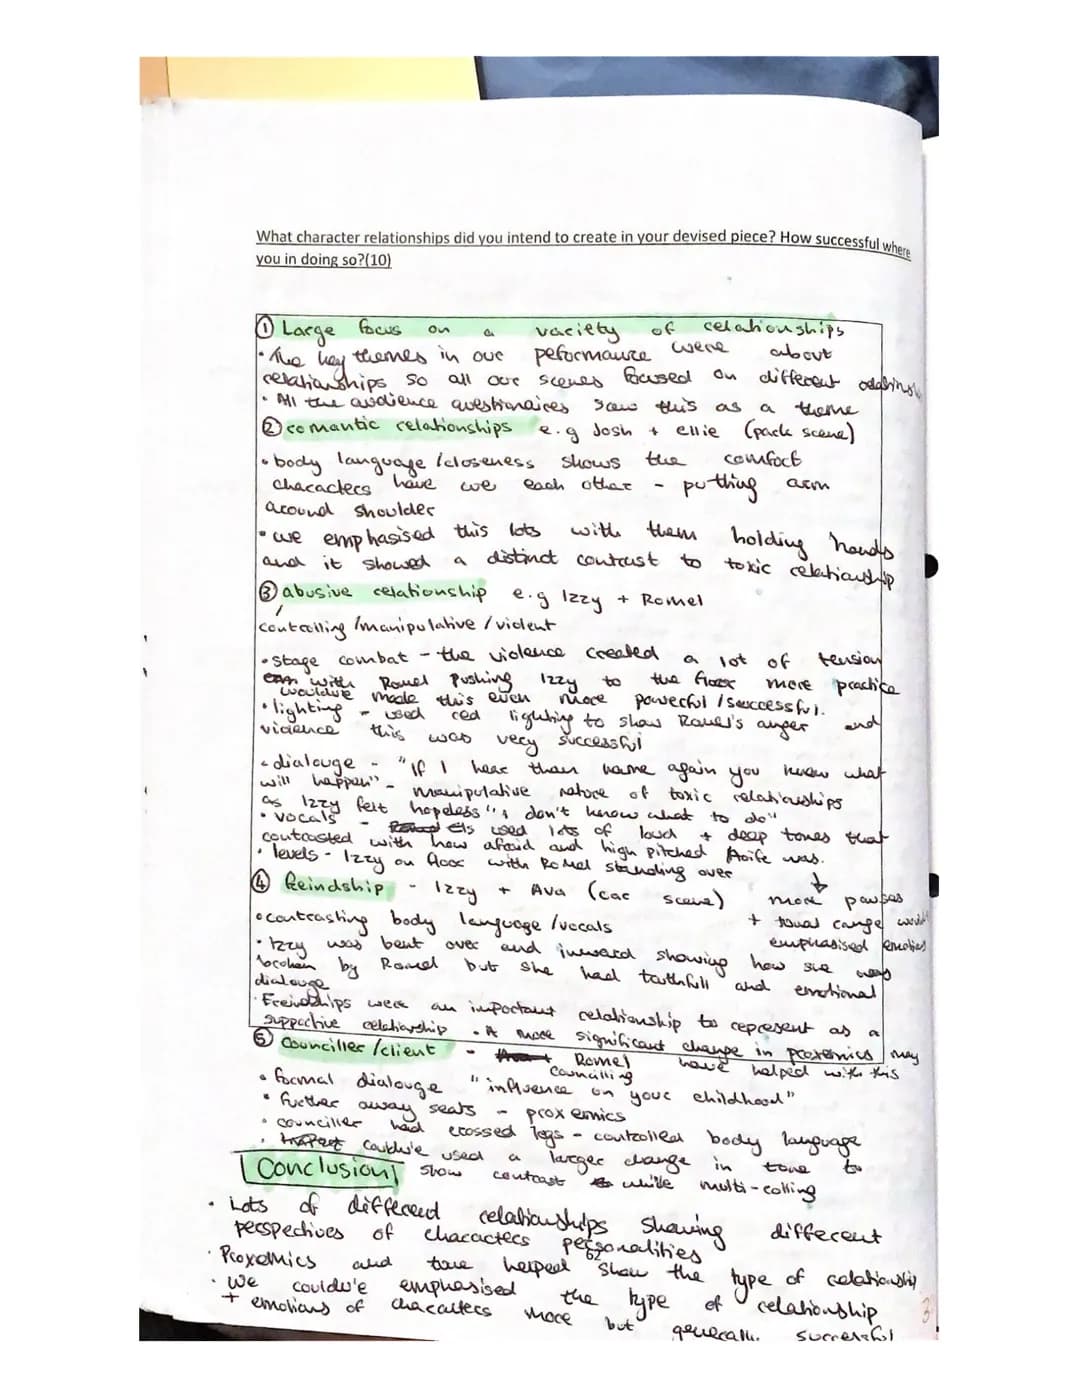 What character relationships did you intend to create in your devised piece? How successful where
you in doing so?(10)
① Large focus on a variety of relationships
• The key themes in our peformance were about
relationships so all our scenes focused on different
• All the audience questionaires saw this as a theme
② romantic relationships e.g Josh + ellie (park scene)
• body language /closeness shows the comfort
characters have we each other - putting arm
around shoulder
• we emphasised this lots with them holding hands
and it showed a distinct contrast to toxic relationship
③ abusive relationship e.g Izzy + Romel
controlling /manipulative / violent
• stage combat - the violence created a lot of tension
with Romel pushing Izzy to the floor more practice
wouldve made this even more powerful / successful.
• lighting - used red lighting to show Romel's anger and
violence this was very successful
• dialouge - "If I hear than name again you know what
will happen" - manipulative nature of toxic relationships
as Izzy felt hopeless "I don't know what to do"
• vocals - Els used lots of loud + deep tones that
contrasted with how afraid and high pitched Aoife was.
• levels - Izzy on floor with Romel standing over
④ freindship - Izzy + Ava (car scene) more pauses
+ tonal range would
• contrasting body language /vocals emphasised emotions
• Izzy was bent over and inward showing how she was
broken by Romel but she had truthfull and emotional
dialouge
• Freindships were an important relationship to represent as a
supportive relationship • A more significant change in proxemics may
have helped with this
⑤ Counciller /client - Romel
Councilling
• formal dialouge "influence on your childhood"
• further away seats - proxemics
• counciller had crossed legs - controlled body language
• Could've used a larger change in tone to
show contrast while multi-rolling
Conclusion
• Lots of differend relationships showing different
perspectives of characters personalities
62
• Proxemics and tone helped show the type of relationship
• We could've emphasised the type of relationship
+ emotions of characters more but generally successful
3